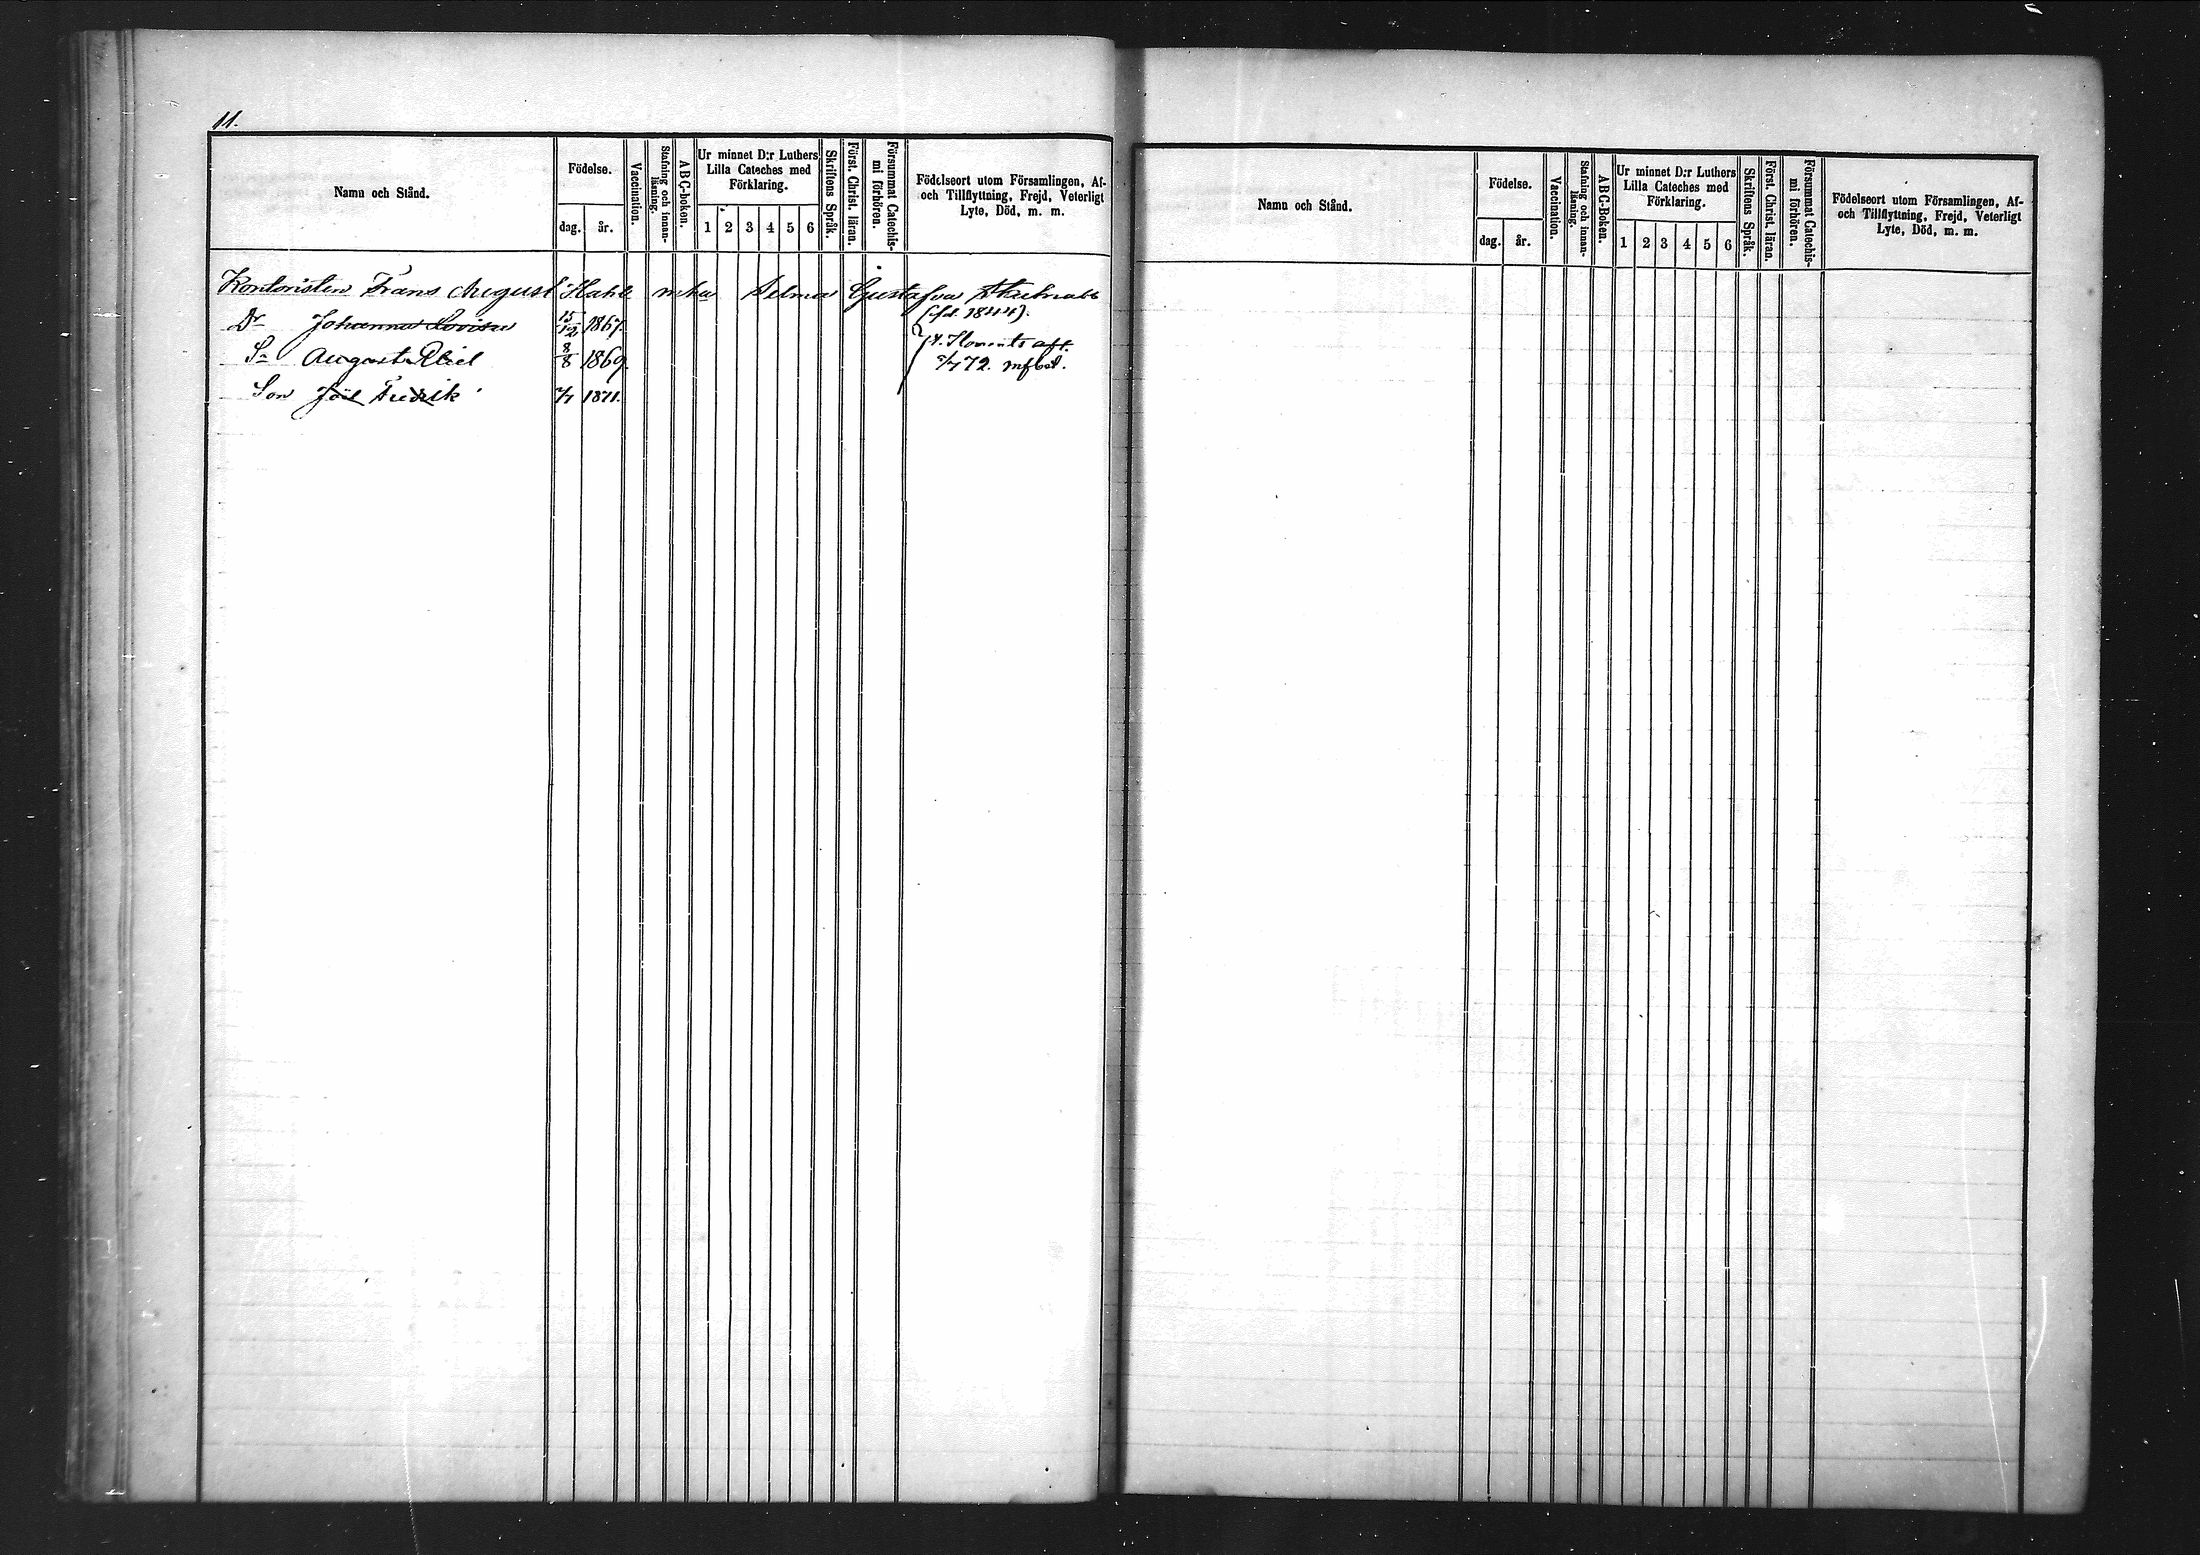 11.
Namn och Stånd.
Födelse.
dag. år.
Vaccination.
Stafning och innan-
läsning.
A B C-boken.
Ur minnet D:r Luthers
Lilla Cateches med
Förklaring.
1 2 3 4 5 6
Skriftens Språk.
Först. Christ. läran.
Försummat Catechis-
mi förhören.
Födelseort utom Församlingen, Af-
och Tillflyttning, Frejd, Veterligt
Lyte, Död, m. m.
Kontoristen Frans August Hahl mha Selma Gustafva
(född 1844).
Dr Johanna Lovisa 15/12 1867.
Sn August Abiel 8/8 1869.
72. mfbet.
Son Joël Fredrik 1871.
Namn och Stånd.
Födelse.
dag. år.
Vaccination.
Stafning och innan-
läsning.
A B C-Boken.
Ur minnet D:r Luthers
Lilla Cateches med
Förklaring.
1 2 3 4 5 6
Skriftens Språk.
Först. Christ. läran.
Försummat Catechis-
mi förhören.
Födelseort utom Församlingen, Af-
och Tillflyttning, Frejd, Veterligt
Lyte, Död, m. m.